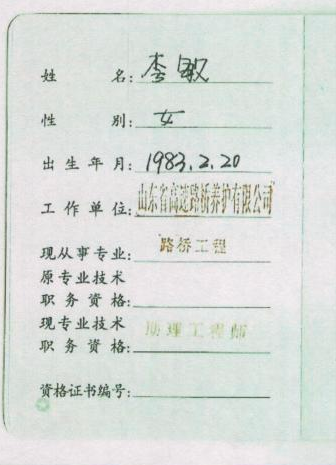 姓 名: 李敏
性 别: 女
出生年月: 1983.2.20
工作单位: 山东省高速路桥养护有限公司
现从事专业: 路桥工程
原专业技术
职务资格:
现专业技术
职务资格: 助理工程师
资格证书编号: